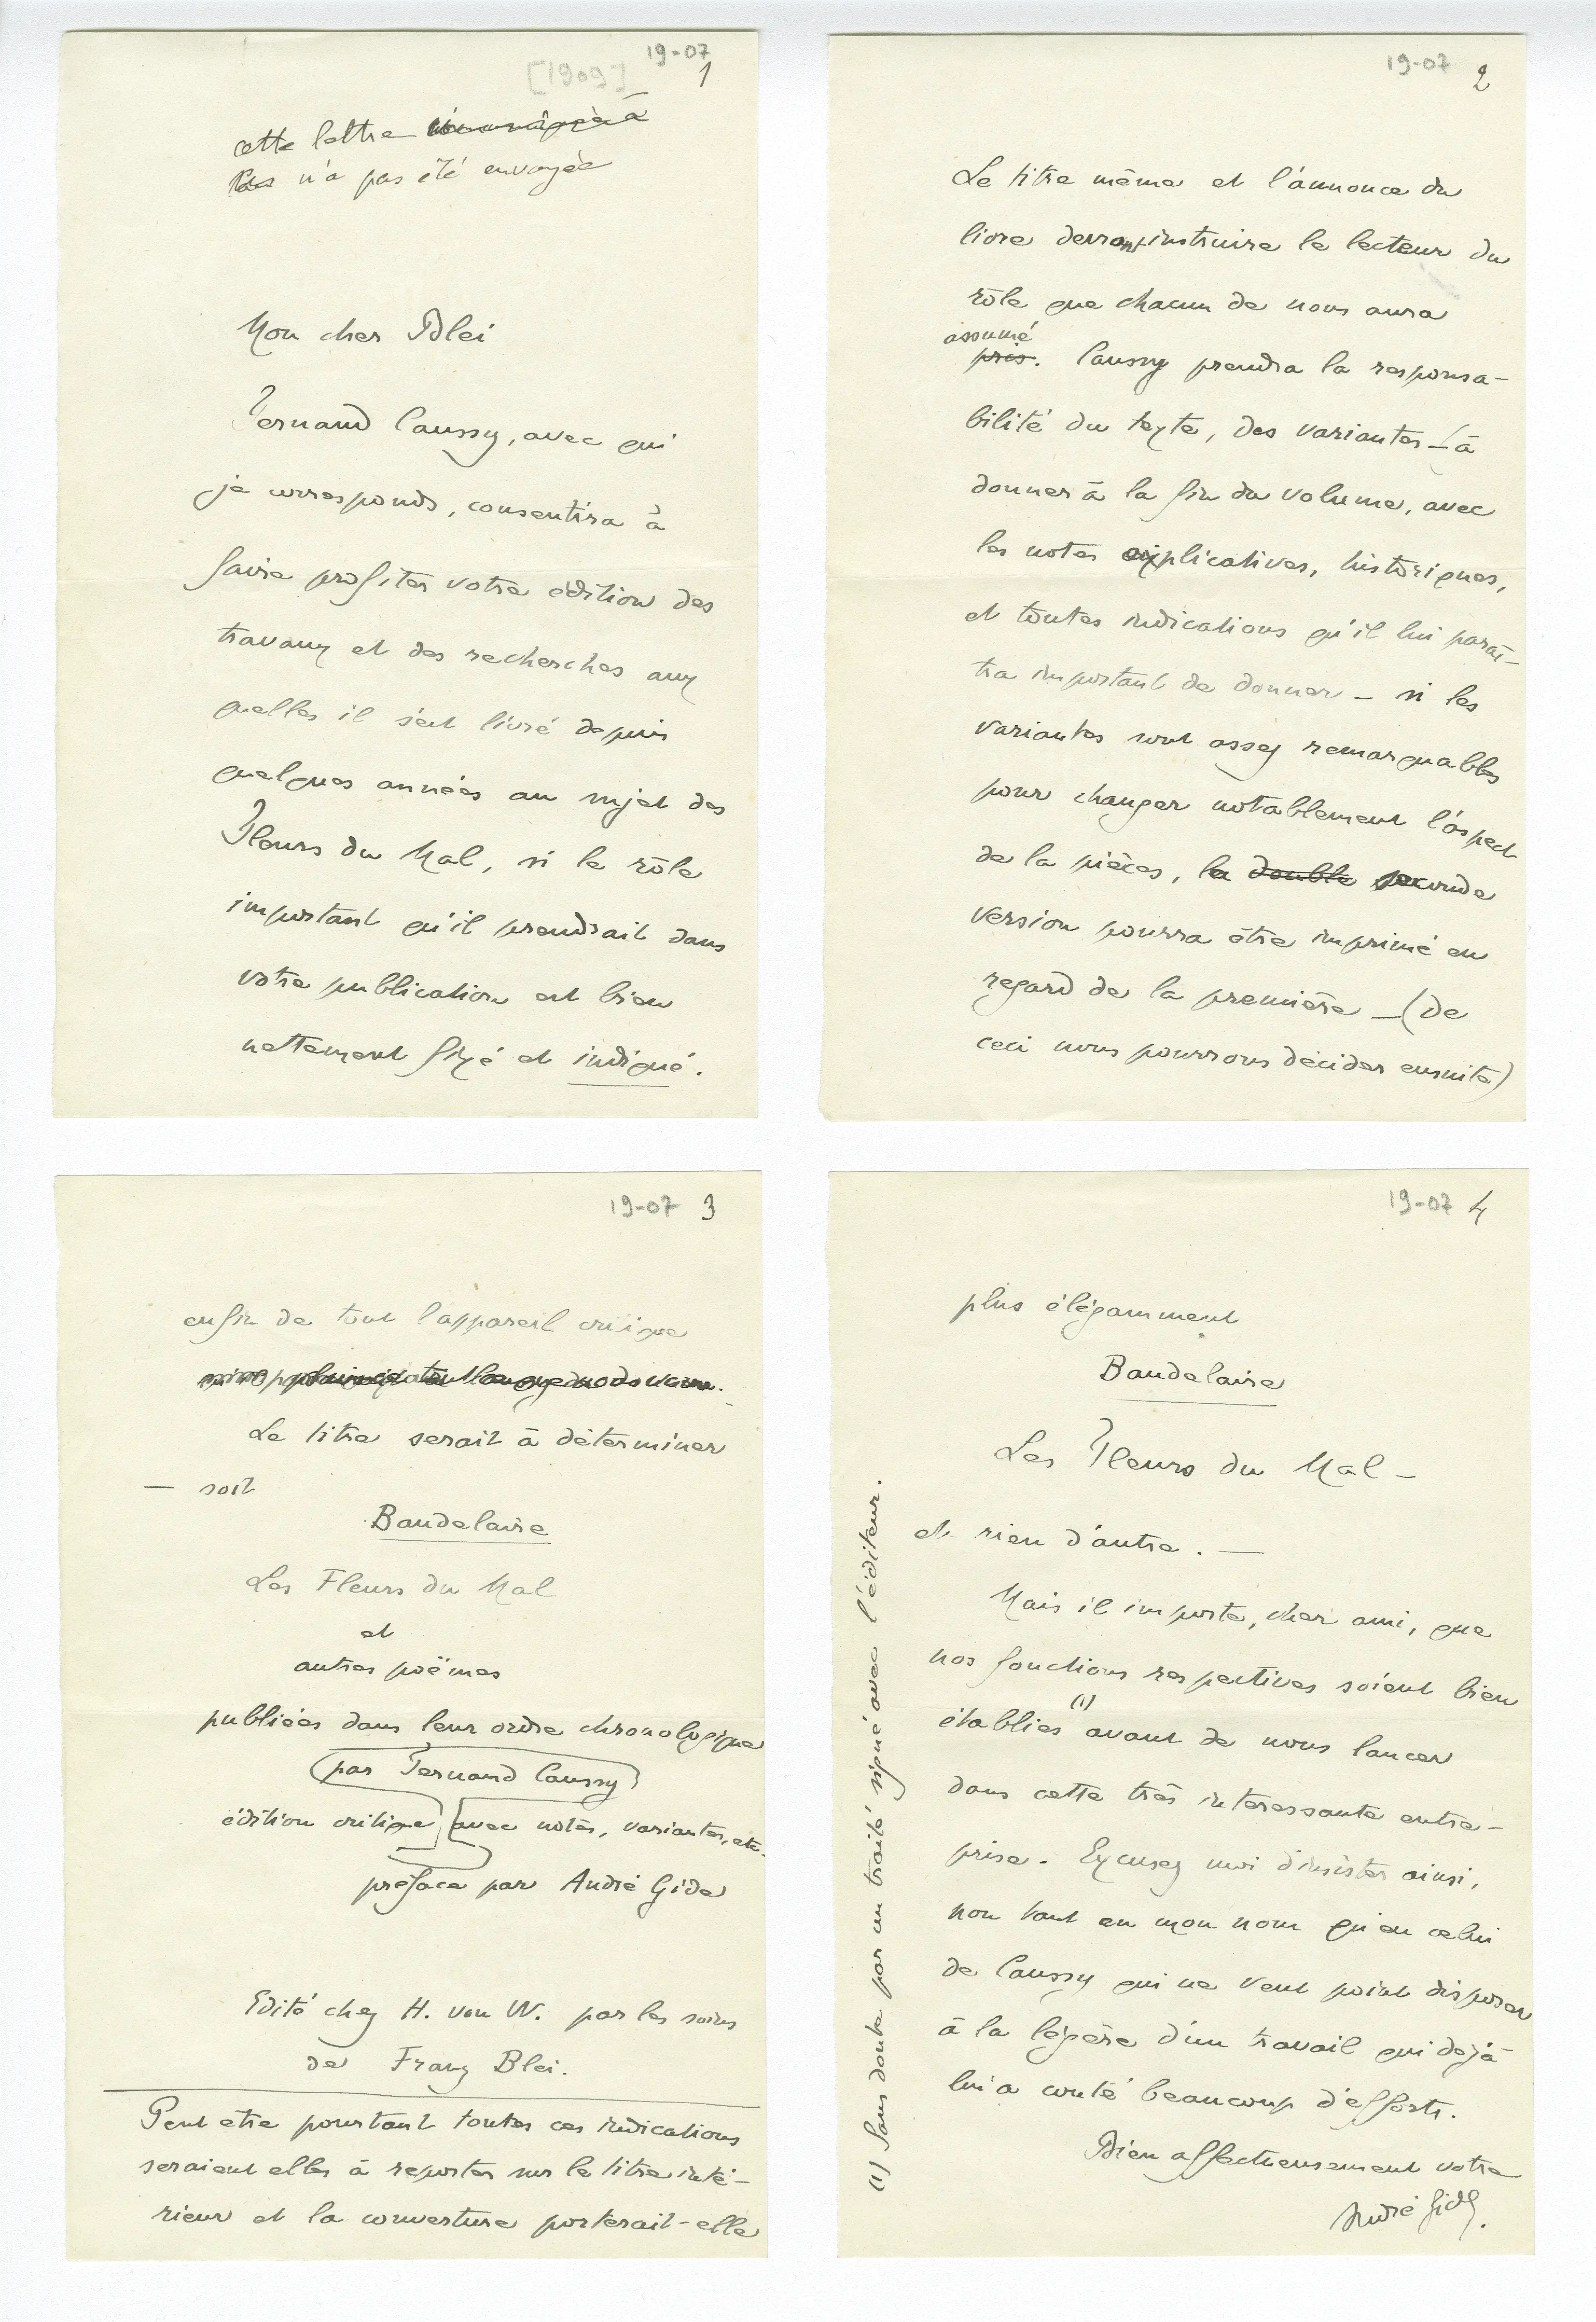 19-07
[1909] 1
cette lettre
n'a pas été envoyée
Mon cher Blei
Fernand Caussy, avec qui
je corresponds, consentira à
faire profiter votre édition des
travaux et des recherches aux
quelles il s'est livré depuis
quelques années au sujet des
Fleurs du Mal, si le rôle
important qu'il prendrait dans
votre publication est bien
nettement fixé et indiqué.
19-07 2
Le titre même et l'annonce du
livre devront instruire le lecteur du
rôle que chacun de nous aura
assumé
pris. Caussy prendra la responsa-
bilité du texte, des variantes – (à
donner à la fin du volume, avec
les notes explicatives, historiques,
et toutes indications qu'il lui paraî-
tra important de donner – si les
variantes sont assez remarquables
pour changer notablement l'aspect
de la pièces, la double seconde
version pourra être imprimé en
regard de la première – (de
ceci nous pourrons décider ensuite)
19-07 3
enfin de tout l'appareil critique
Le titre serait à déterminer
— soit
Baudelaire
Les Fleurs du Mal
et
autres poëmes
publiées dans leur ordre chronologique
(par Fernand Caussy)
édition critique avec notes, variantes, etc.
préface par André Gide
Edité chez H. von W. par les soins
de Franz Blei.
Peut etre pourtant toutes ces indications
seraient elles à reporter sur le titre inté-
rieur et la couverture porterait-elle
19-07 4
plus élégamment
Baudelaire
Les Fleurs du Mal –
et rien d'autre. —
Mais il importe, cher ami, que
nos fonctions respectives soient bien
établies (1) avant de nous lancer
dans cette très interessante entre-
prise. Excusez moi d'insister ainsi,
non tant en mon nom qu'en celui
de Caussy qui ne veut point disposer
à la légère d'un travail qui dejà
lui a couté beaucoup d'efforts.
Bien affectueusement votre
André Gide.
(1) Sans doute par un traité signé avec l'éditeur.